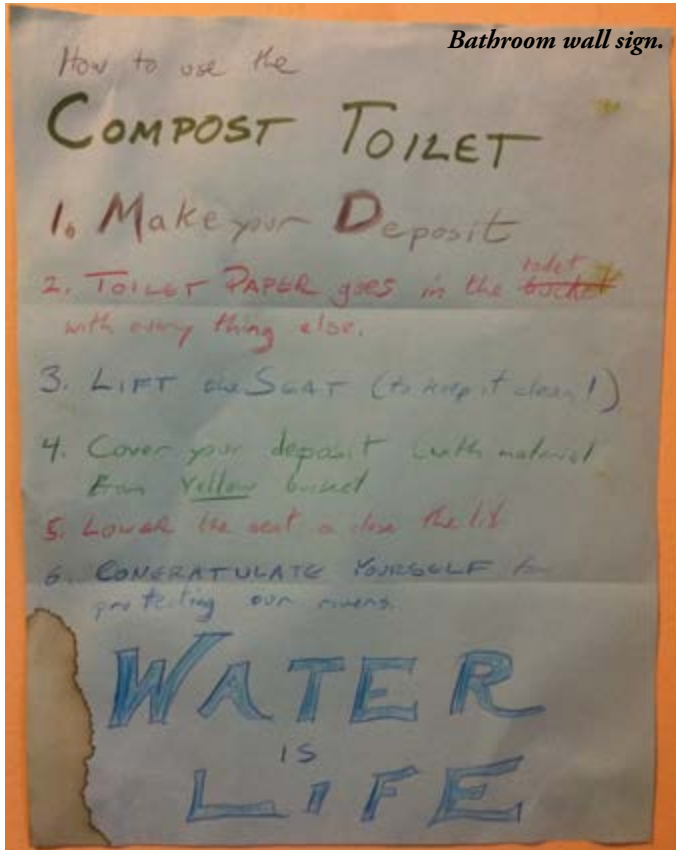 Bathroom wall sign.
How to use the
COMPOST TOILET
1. Make your Deposit
toilet
2. TOILET PAPER goes in the bucket
with every thing else.
3. LIFT the SEAT (to keep it clean!)
4. Cover your deposit with material
from Yellow bucket
5. LOWER the seat & close the lid
6. CONGRATULATE YOURSELF for
protecting our rivers.
WATER
IS
LIFE